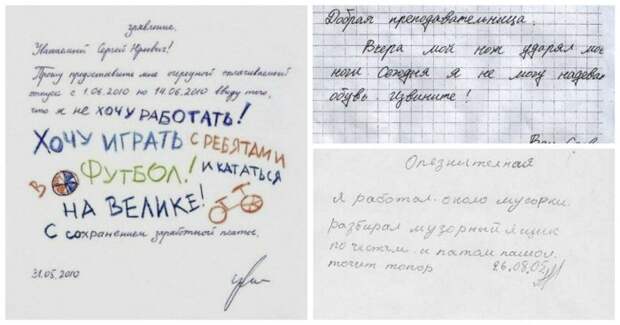 заявление.
Уважаемый Сергей Юрьевич!
Прошу предоставить мне очередной оплачиваемый
отпуск с 1.06.2010 по 14.06.2010 ввиду того,
что я не ХОЧУ РАБОТАТЬ!
ХОЧУ ИГРАТЬ С РЕБЯТАМИ
В ФУТБОЛ! И КАТАТЬСЯ
НА ВЕЛИКЕ!
С сохранением заработной платы.
31.05.2010
Добрая преподавательница.
Вчера мой нож ударял мое
ноги Сегодня я не могу надеват
обувь. Извините!
Опезнителная
Я работал около мусорки
разбирал музорный ящик
по чястям и патом пашол
точит топор 26.08.02